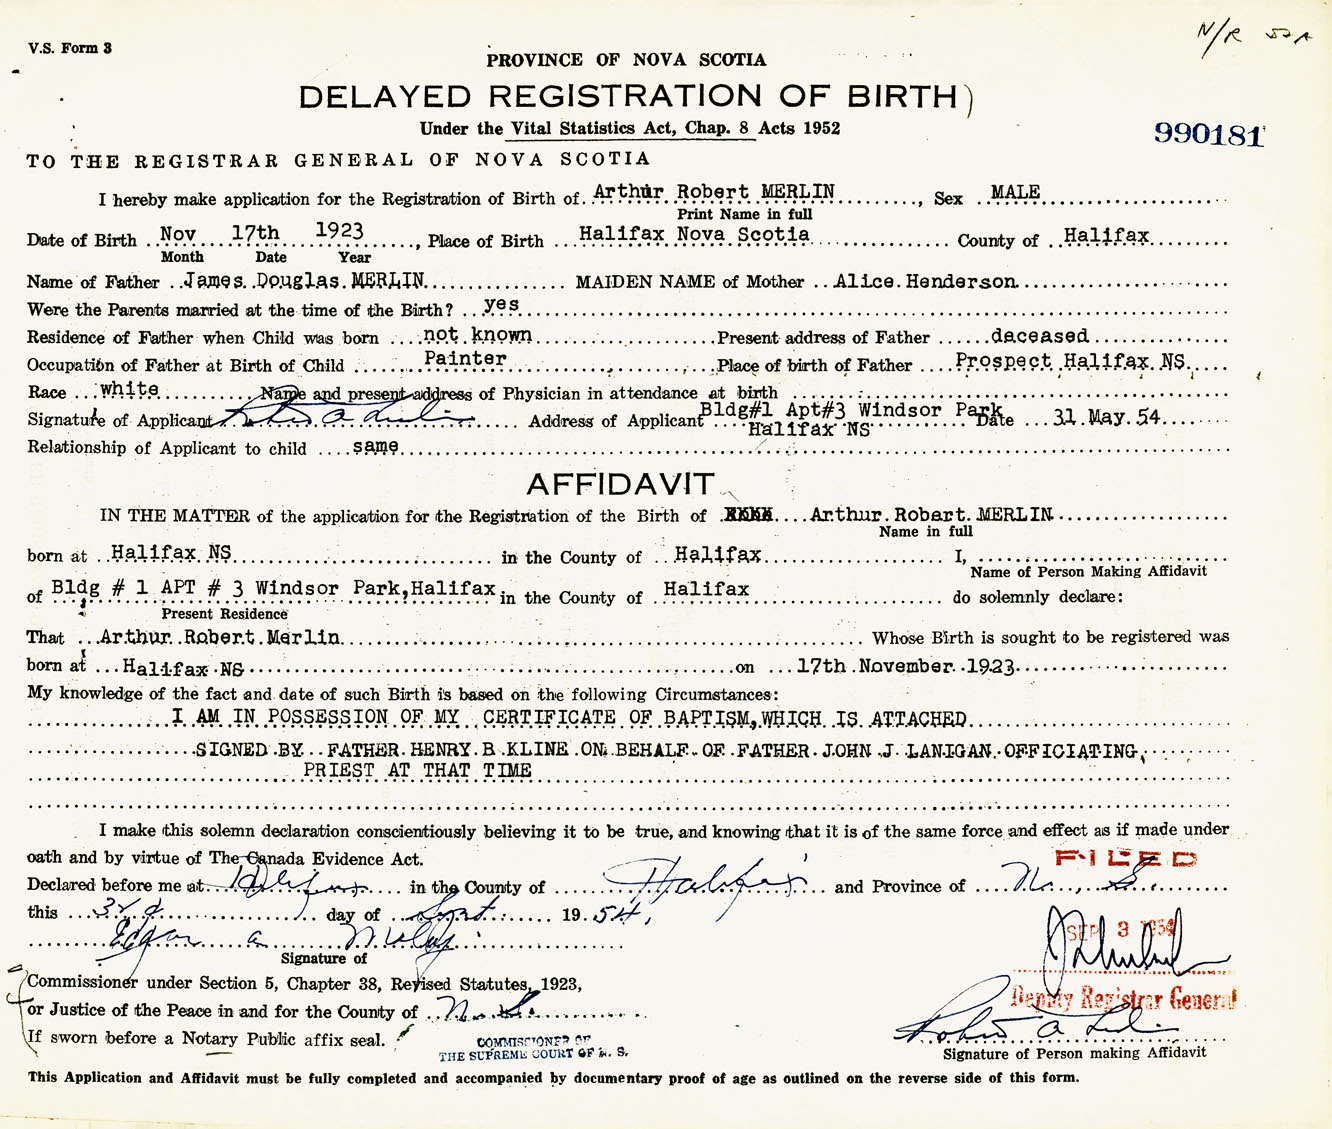 N/R
V.S. Form 3
PROVINCE OF NOVA SCOTIA
DELAYED REGISTRATION OF BIRTH)
Under the Vital Statistics Act, Chap. 8 Acts 1952
990181
TO THE REGISTRAR GENERAL OF NOVA SCOTIA
I hereby make application for the Registration of Birth of Arthur Robert MERLIN, Sex MALE
Print Name in full
Date of Birth Nov 17th 1923, Place of Birth Halifax Nova Scotia County of Halifax
Month Date Year
Name of Father James Douglas MERLIN MAIDEN NAME of Mother Alice Henderson
Were the Parents married at the time of the Birth? yes
Residence of Father when Child was born not known Present address of Father deceased
Occupation of Father at Birth of Child Painter Place of birth of Father Prospect Halifax NS
Race white Name and present address of Physician in attendance at birth
Signature of Applicant Address of Applicant Bldg#1 Apt#3 Windsor Park Date 31 May 54
Halifax NS
Relationship of Applicant to child same
AFFIDAVIT
IN THE MATTER of the application for the Registration of the Birth of Arthur Robert MERLIN
Name in full
born at Halifax NS in the County of Halifax I,
Name of Person Making Affidavit
of Bldg # 1 APT # 3 Windsor Park, Halifax in the County of Halifax do solemnly declare:
Present Residence
That Arthur Robert Merlin Whose Birth is sought to be registered was
born at Halifax NS on 17th November 1923
My knowledge of the fact and date of such Birth is based on the following Circumstances:
I AM IN POSSESSION OF MY CERTIFICATE OF BAPTISM, WHICH IS ATTACHED
SIGNED BY FATHER HENRY B KLINE ON BEHALF OF FATHER JOHN J LANIGAN OFFICIATING
PRIEST AT THAT TIME
I make this solemn declaration conscientiously believing it to be true, and knowing that it is of the same force and effect as if made under
oath and by virtue of The Canada Evidence Act.
FILED
Declared before me at Halifax in the County of Halifax and Province of N. S.
this 3rd day of Sept 1954,
SEP 3 1954
Edgar A
Signature of
Commissioner under Section 5, Chapter 38, Revised Statutes, 1923,
Deputy Registrar General
or Justice of the Peace in and for the County of N. S.
If sworn before a Notary Public affix seal.
COMMISSIONER OF
THE SUPREME COURT OF N. S.
Signature of Person making Affidavit
This Application and Affidavit must be fully completed and accompanied by documentary proof of age as outlined on the reverse side of this form.